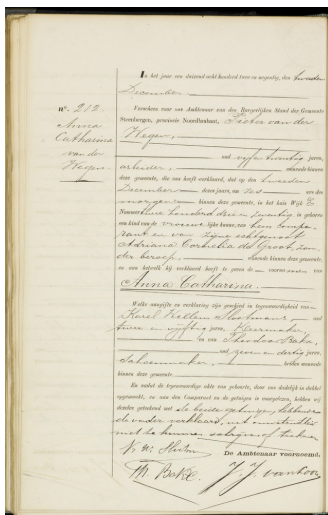 In het jaar een duizend acht honderd twee en negentig, den tweeden
December
Verscheen voor ons Ambtenaar van den Burgerlijken Stand der Gemeente
Steenbergen, provincie Noordbrabant, Pieter van der
Hagen,
No. 212.
Anna
Catharina
van der
Hagen
oud vijf en twintig jaren,
arbeider, wonende binnen
deze gemeente, die ons heeft verklaard, dat op den tweeden
December dezes jaars, na zes ure des
morgens binnen deze gemeente, in het huis Wijk E
Nommer een honderd drie en twintig is geboren
een kind van de vrouwelijke kunne, van hem compa-
rant en van zijne echtgenoot
Adriana Cornelia de Groot, zon
der beroep, wonende binnen deze gemeente,
en aan hetwelk hij verklaard heeft te geven de voornamen van
Anna Catharina.
Welke aangifte en verklaring zijn geschied in tegenwoordigheid van
Karel Willem Slootmans oud
twee en vijftig jaren, Kleermaker,
en van Theodoor Bakx,
oud zeven en dertig jaren,
Schoenmaker, beiden wonende
binnen deze gemeente
En nadat de tegenwoordige akte van geboorte, door ons dadelijk in dubbel
opgemaakt, en aan den Comparant en de getuigen is voorgelezen, hebben wij
dezelve geteekend met de beide getuigen, hebbende
de vader verklaard, uit onkunde
niet te kunnen schrijven of teekenen
De Ambtenaar voornoemd.
Th. Bakx.